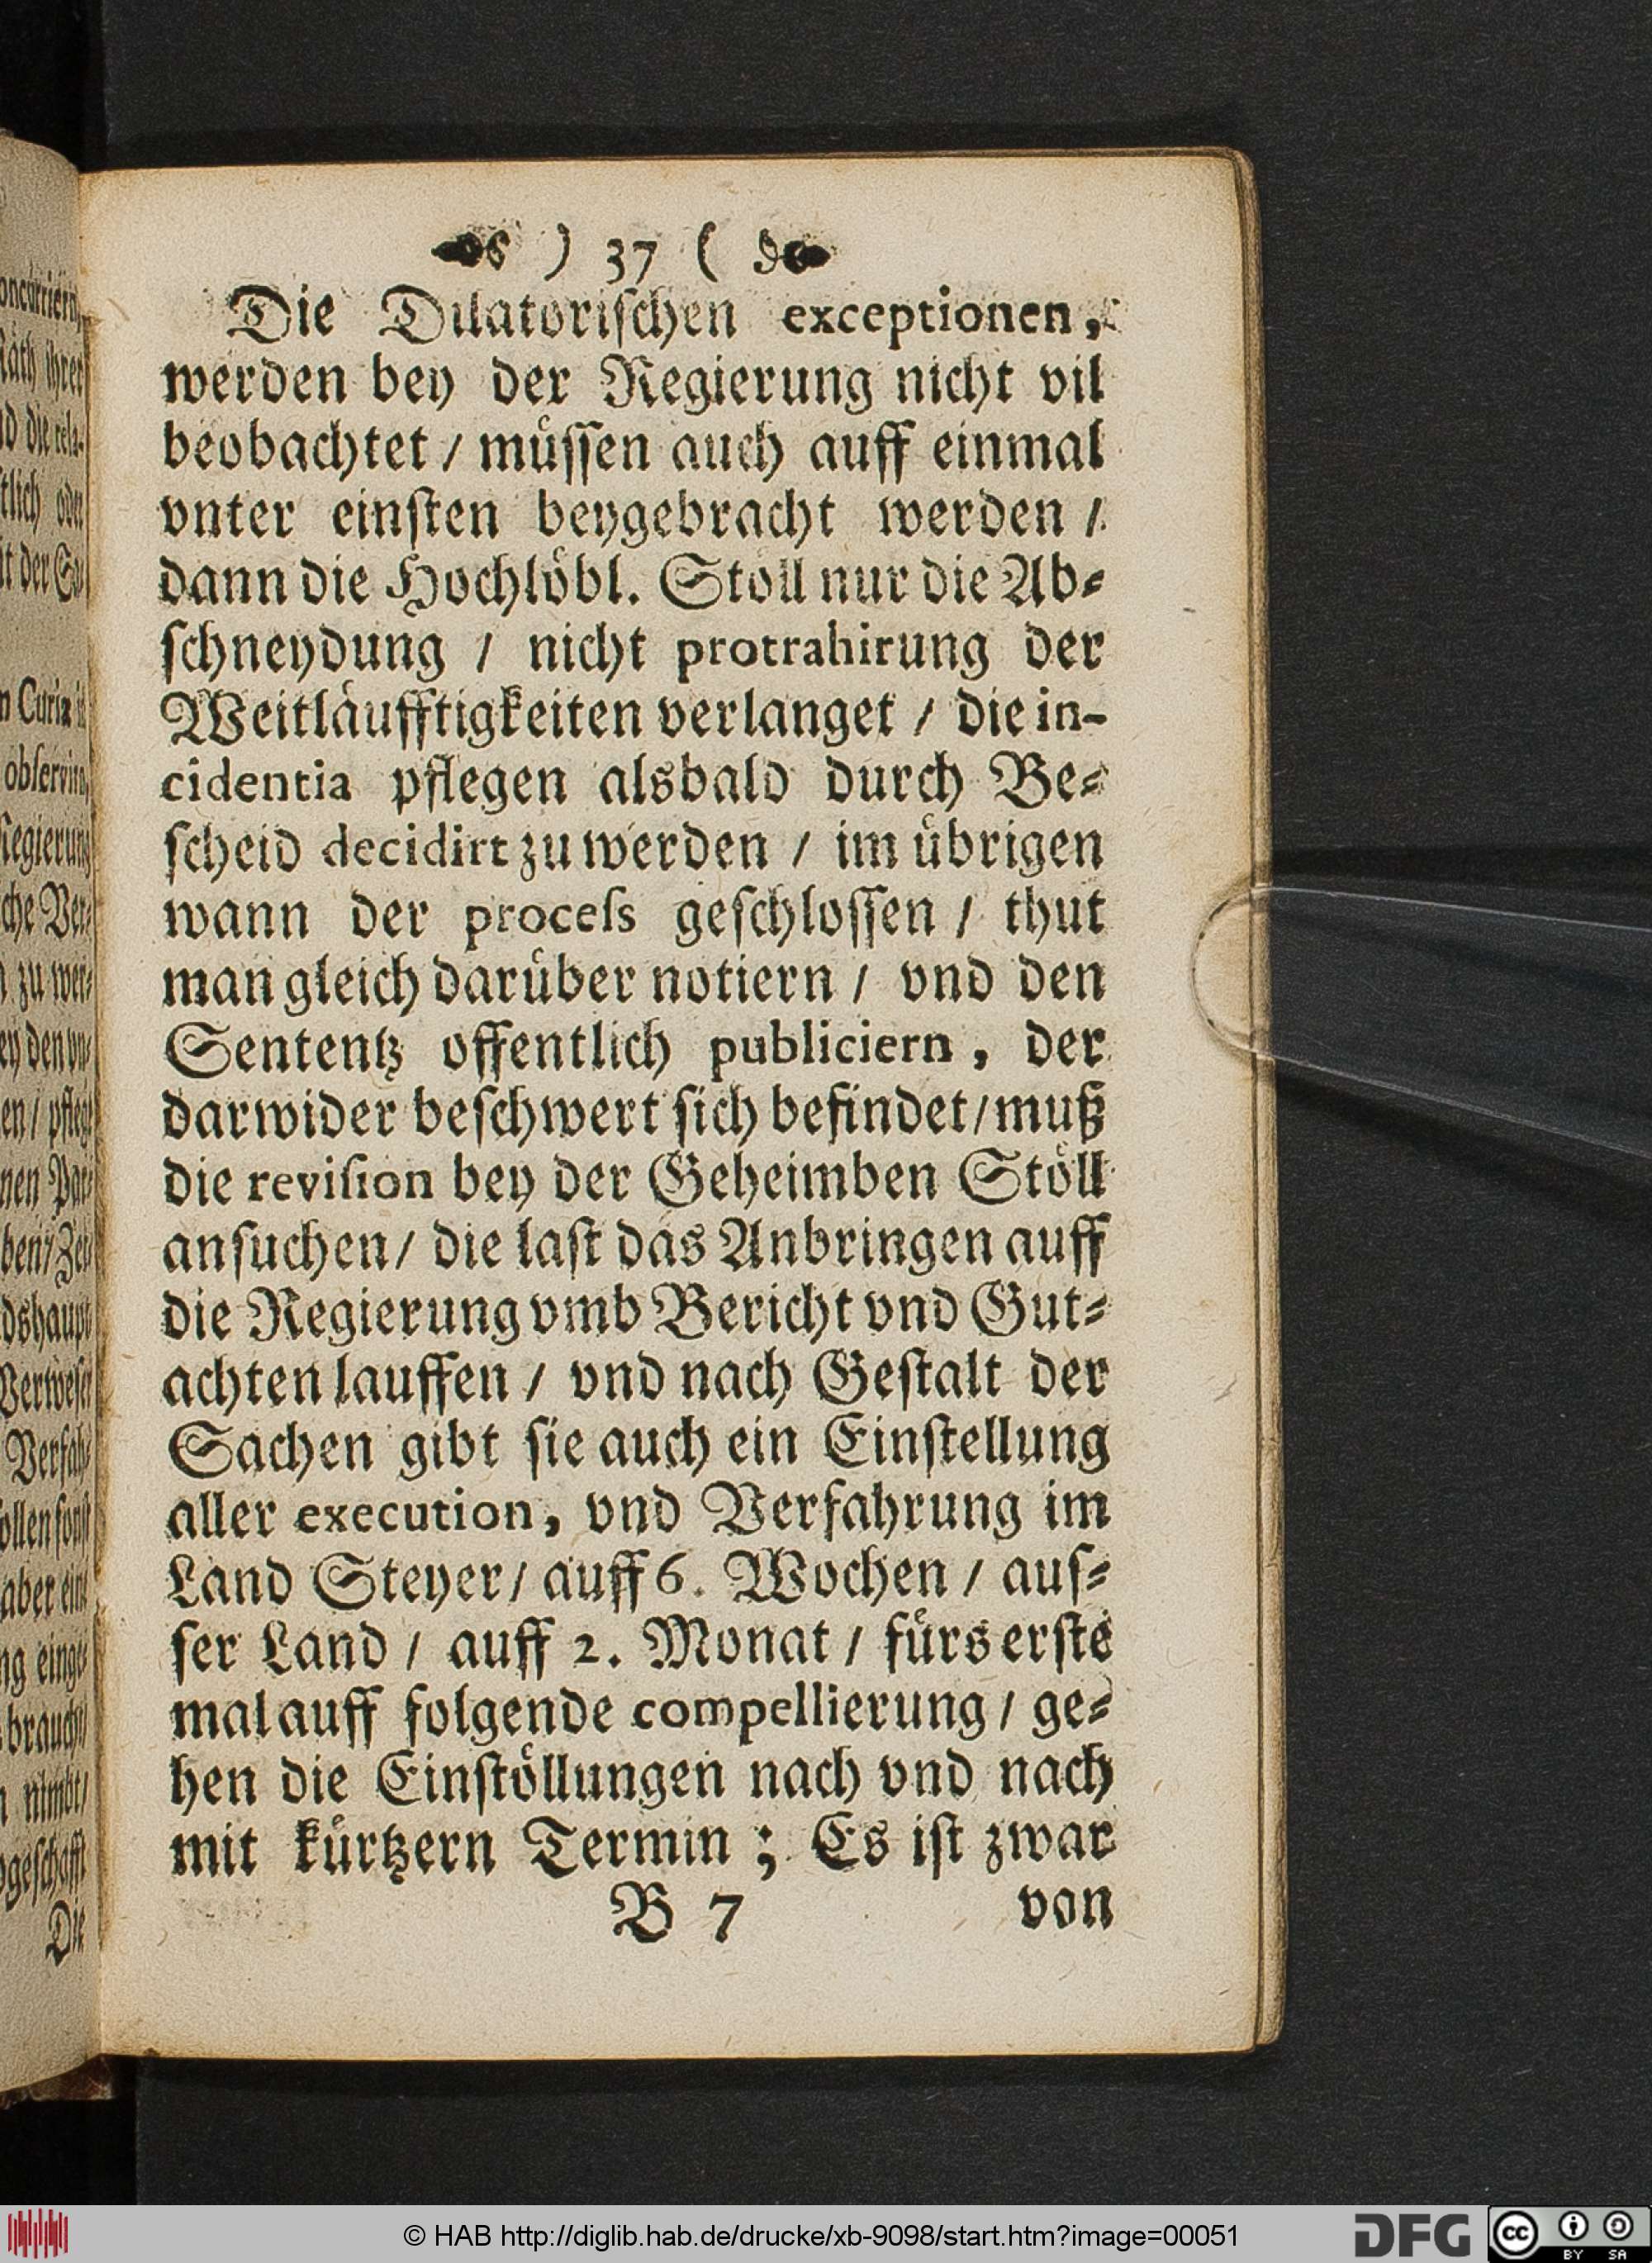 ) 37 (
Die Dilatoriſchen exceptionen,
werden bey der Regierung nicht vil
beobachtet / muͤſſen auch auff einmal
vnter einſten beygebracht werden /
dann die Hochloͤbl. Stoͤll nur die Ab⸗
ſchneydung / nicht protrahirung der
Weitlaͤufftigkeiten verlanget / die in-
cidentia pflegen alsbald durch Be⸗
ſcheid decidirt zu werden / im uͤbrigen
wann der proceſs geſchloſſen / thut
man gleich daruͤber notiern / vnd den
Sententz offentlich publiciern, der
darwider beſchwert ſich befindet / muß
die reviſion bey der Geheimben Stoͤll
anſuchen / die laſt das Anbringen auff
die Regierung vmb Bericht vnd Gut⸗
achten lauffen / vnd nach Geſtalt der
Sachen gibt ſie auch ein Einſtellung
aller execution, vnd Verfahrung im
Land Steyer / auff 6. Wochen / auſ⸗
ſer Land / auff 2. Monat / fuͤrs erſte
mal auff folgende compellierung / ge⸗
hen die Einſtoͤllungen nach vnd nach
mit kuͤrtzern Termin ; Es iſt zwar
B 7 von
© HAB http://diglib.hab.de/drucke/xb-9098/start.htm?image=00051
DFG
cc
BY SA